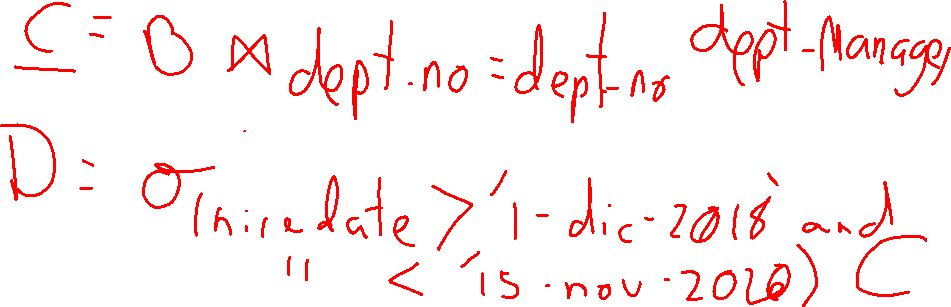 C = B ⋈ dept.no = dept-no dept-Manager
D = σ (hiredate > '1-dic-2018' and
" < '15-nov-2020) C